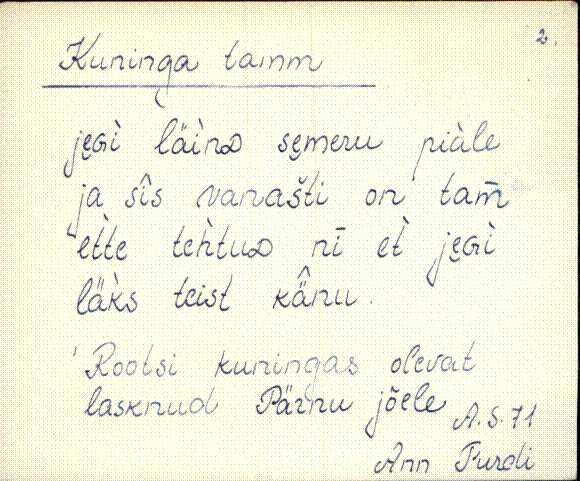 2.
Kuninga tamm
je̮Gì läìnD se̮meru piàle
ja sîs vanašti on tam̄
ette tehtuD nī et je̮Gì
läks teist kä̂nu.
Rootsi kuningas olevat
lasknud Pärnu jõele
A.S. 71
Ann Turdi